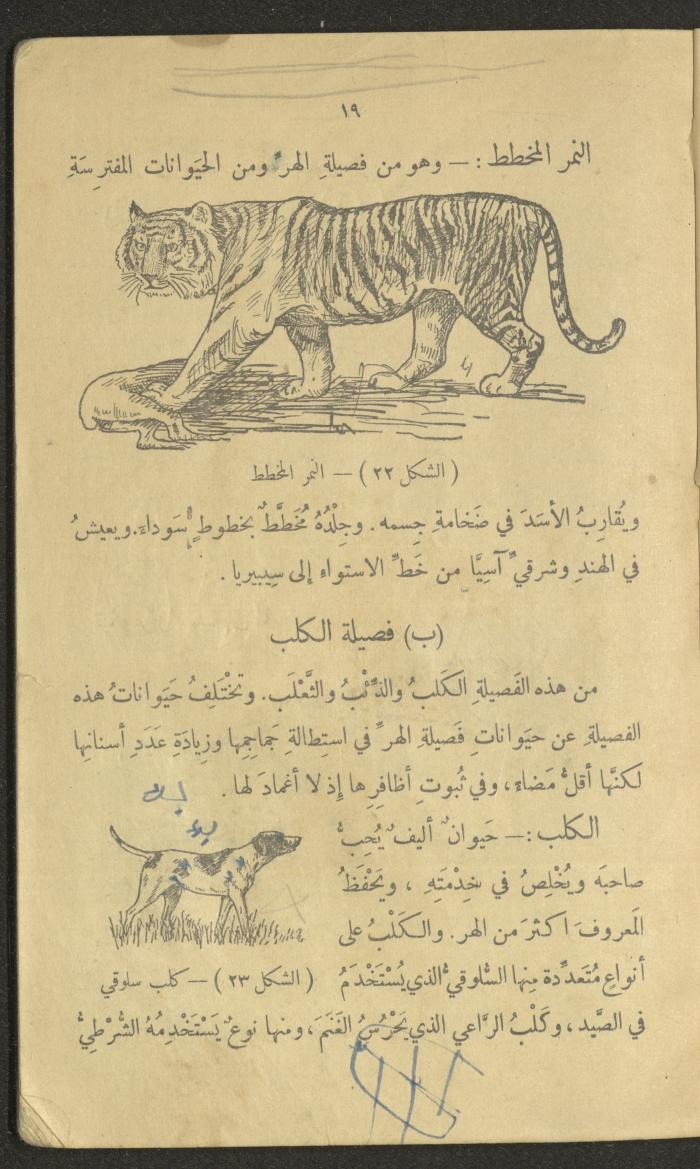 ١٩
النمر المخطط : — وهو من فصيلةِ الهرِّ ومن الحيَوانات المفترِسَةِ
( الشكل ٢٢ ) — النمر المخطط
ويُقارِبُ الأسَدَ في ضَخامةِ جِسمه . وجِلْدُهُ مُخَطَّطٌ بخطوطٍ سَوداءَ. ويعيشُ
في الهندِ وشرقيِّ آسِيَّا من خَطِّ الاستواءِ إلى سِيبيريا .
(ب) فصيلة الكلب
من هذه الفَصيلةِ الكَلبُ والذِّئْبُ والثَّعْلَب . وتَخْتَلِفُ حَيَواناتُ هذه
الفصيلةِ عن حيَواناتِ فَصيلةِ الهرِّ في استِطالةِ جَماجِمِها وزِيادَةِ عَدَدِ أسنانِها
لكنَّها أقلُّ مَضاءً ، وفي ثُبوتِ أظافِرِها إذ لا أغمادَ لها .
الكلب : — حَيوانٌ أليفٌ يُحِبُّ
صاحبَه ويُخْلِصُ في خِدْمَتِهِ ، ويَحْفَظُ
المَعروفَ اكثرَ من الهر . والكَلْبُ على
أنواعٍ مُتَعدِّدة مِنها السَّلوقيُّ الذي يُسْتَخْدَمُ
( الشكل ٢٣ ) — كلب سلوقي
في الصَّيد ، وكَلْبُ الرَّاعي الذي يَحْرُسُ الغَنَمَ ، ومنها نوعٌ يَسْتَخْدِمُهُ الشُّرْطِيُّ